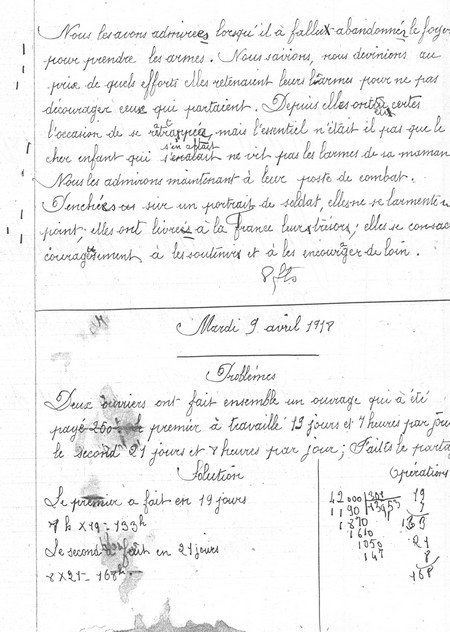 Nous les avons admirées lorsqu'il à fallu abandonner le foyer
pour prendre les armes. Nous savions, nous devinions au
prix de quels efforts elles retenaient leurs larmes pour ne pas
décourager ceux qui partaient. Depuis elles ont certes
l'occasion de se mais l'essentiel n'était il pas que le
s'en allait
cher enfant qui ne vit pas les larmes de sa maman
Nous les admirons maintenant à leur poste de combat.
Penchées sur un portrait de soldat, elles ne se larmente
point; elles ont livrées à la France leurs trésors; elles se consac
courageusement à les soutenirs et à les encourager de loin.
8 fts
Mardi 9 avril 1918
Problèmes
Deux ouvriers ont fait ensemble un ouvrage qui à été
payé 260 le premier à travaillé 19 jours et 7 heures par jour
le second 21 jours et 8 heures par jour; Faites le partag
Solution
Opérations
Le premier a fait en 19 jours
7h x 19 = 133h
Le second fait en 21 jours
8 x 21 = 168h
42000 301
1190 13953
1870
1610
1050
147
19
7
133
21
8
168